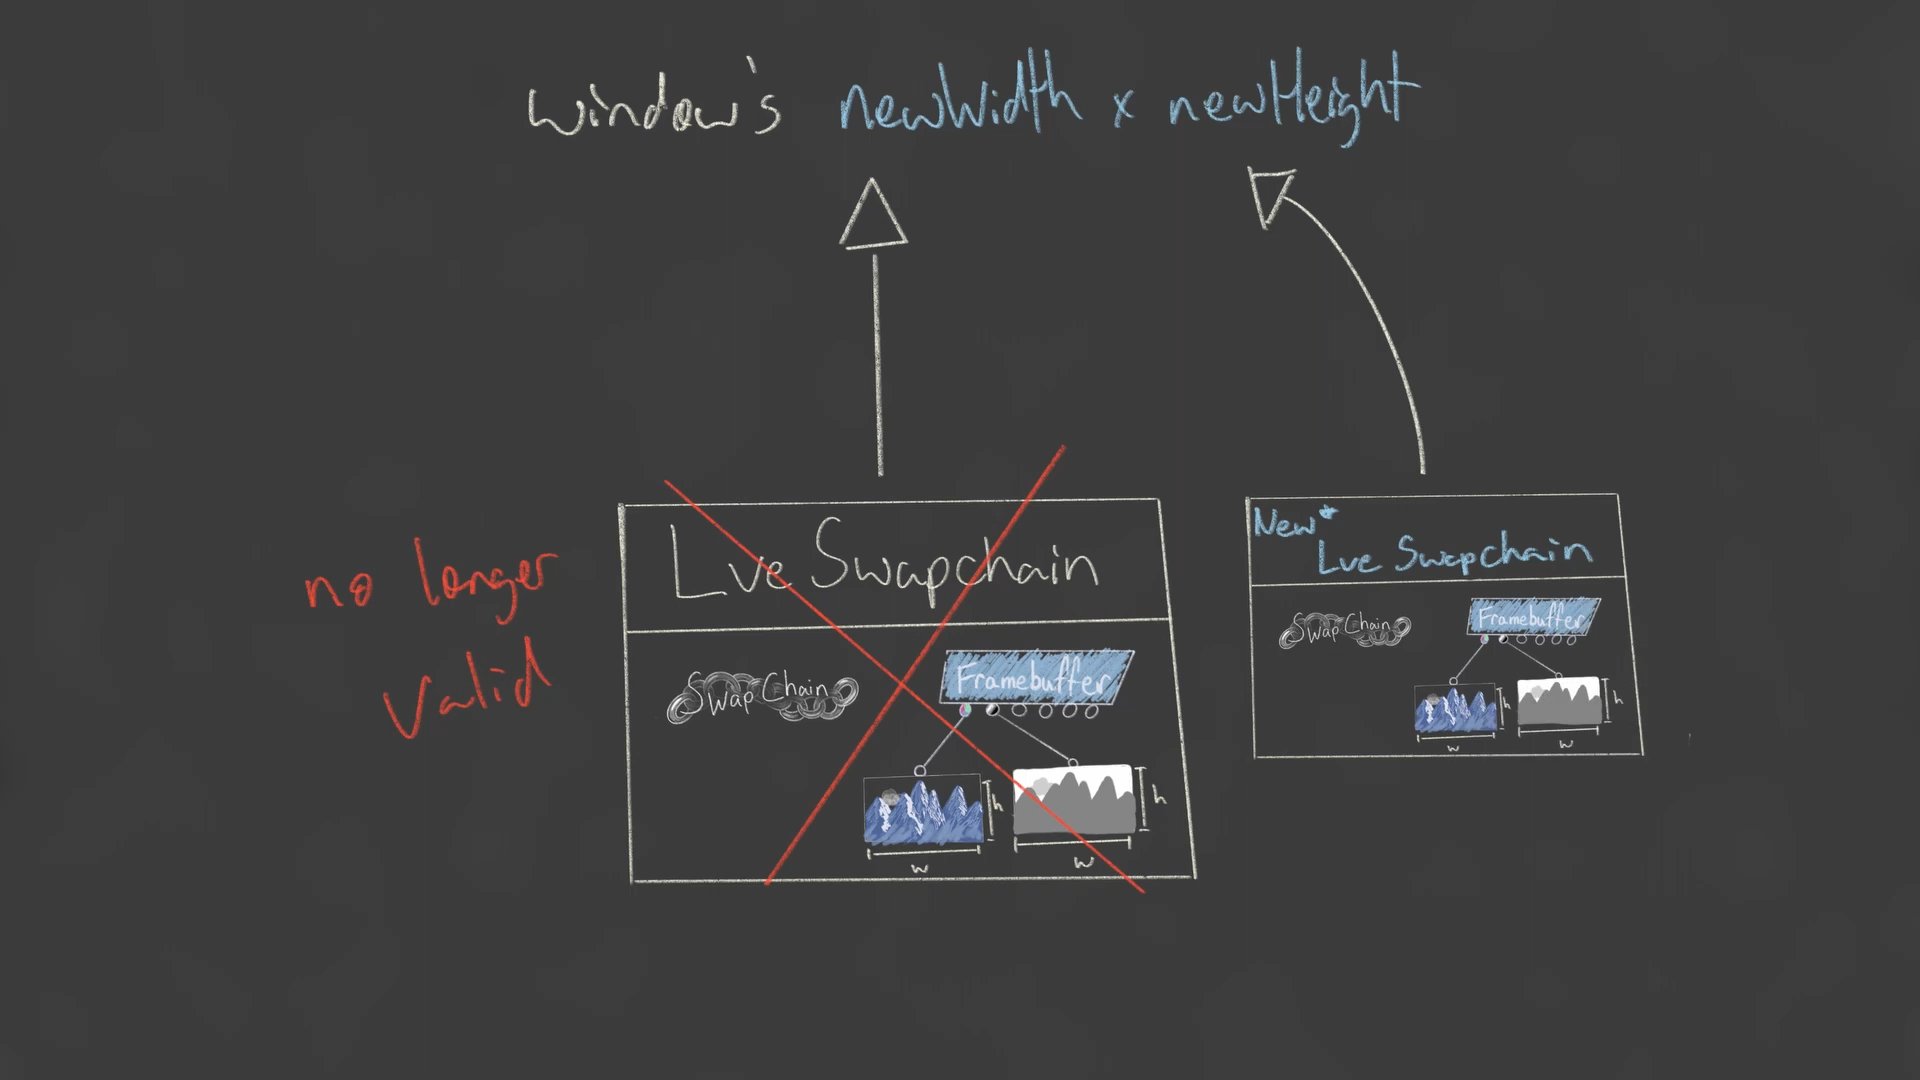 window's newWidth x newHeight
no longer
valid
Lve Swapchain
Swap Chain
Framebuffer
h
h
w
w
New*
Lve Swapchain
Swap Chain
Framebuffer
h
h
w
w